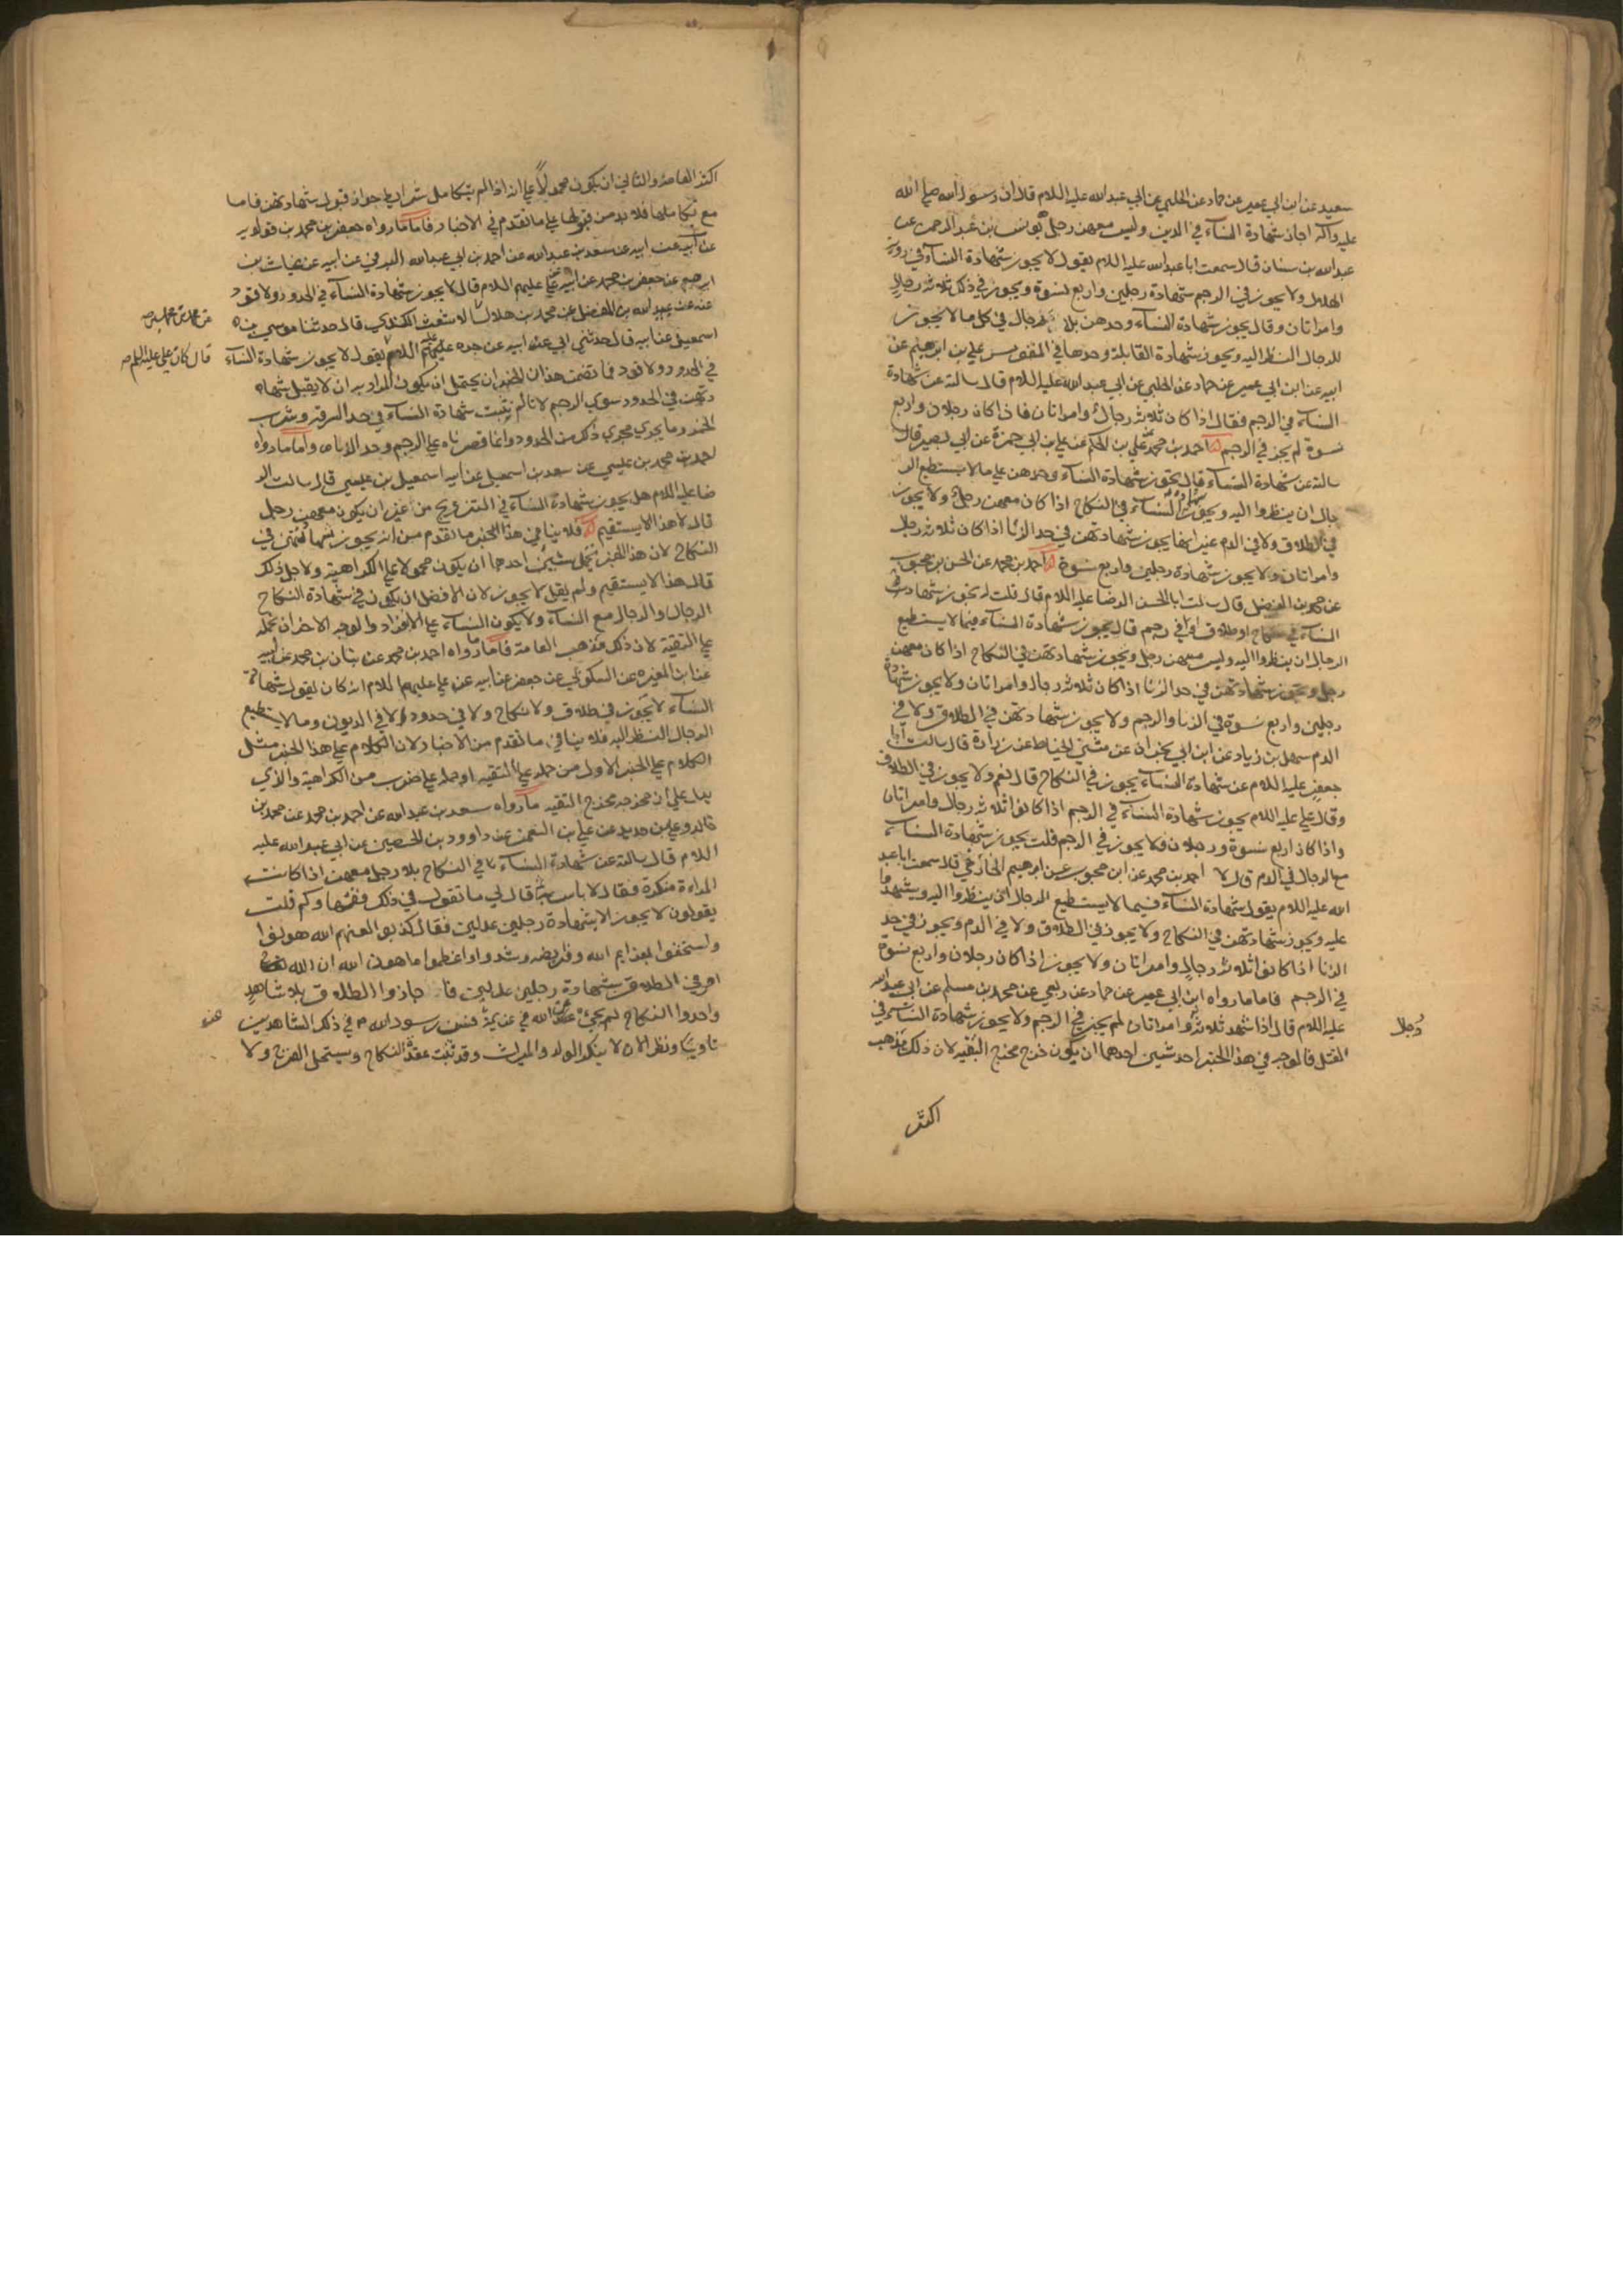 سعيد عن ابن ابي عمير عن حماد عن الحلبي عن ابي عبدالله عليه السلام قال ان رسول الله صلي الله
عليه وآله اجاز شهادة النسآء في الدين وليس معهن رجل يونس بن عبد الرحمن عن
عبدالله بن سنان قال سمعت اباعبدالله عليه السلام يقول لا يجوز شهادة النسآء في روية
الهلال ولا يجوز في الرجم شهادة رجلين واربع نسوة ويجوز في ذلك ثلاثه رجال
وامراتان وقال يجوز شهادة النسآء وحدهن بلا رجال في كل ما لا يجوز
للرجال النظر اليه ويجوز شهادة القابلة وحدها في المنفوس علي بن ابرهيم عن
ابيه عن ابن ابي عمير عن حماد عن الحلبي عن ابي عبدالله عليه السلام قال سالته عن شهادة
النسآء في الرجم فقال اذا كان ثلاثه رجال وامراتان فاذا كان رجلان واربع
نسوة لم يجز في الرجم احمد بن محمد عن علي بن الحكم عن علي بن ابي حمزة عن ابي بصير قال
سالته عن شهادة النسآء قال يجوز شهادة النسآء وحدهن علي ما لا يستطيع الر
جال ان ينظروا اليه ويجوز شهادة النسآء في النكاح اذا كان معهن رجل ولا يجوز
في الطلاق ولا في الدم غير انها يجوز شهادتهن في حد الزنا اذا كان ثلاثه رجال
وامراتان ولا يجوز شهادة رجلين واربع نسوة احمد بن محمد عن الحسن بن محبوب
عن محمد بن الفضيل قال سالت ابا الحسن الرضا عليه السلام قال قلت له تجوز شهادت
النسآء في نكاح او طلاق او في رجم قال يجوز شهادة النسآء فيما لا يستطيع
الرجال ان ينظروا اليه وليس معهن رجل ويجوز شهادتهن في النكاح اذا كان معهن
رجل وتجوز شهادتهن في حد الزنا اذا كان ثلاثه رجال وامراتان ولا يجوز شهادة
رجلين واربع نسوة في الزنا والرجم ولا يجوز شهادتهن في الطلاق ولا في
الدم سهل بن زياد عن ابن ابي نجران عن مثني الحناط عن زرارة قال سالت ابا
جعفر عليه السلام عن شهادة النسآء يجوز في النكاح قال نعم ولا يجوز في الطلاق
وقال علي عليه السلام يجوز شهادة النسآء في الرجم اذا كانوا ثلاثه رجال وامراتان
واذا كان اربع نسوة ورجلان فلا يجوز في الرجم قلت يجوز شهادة النسآء
مع الرجال في الدم قال لا احمد بن محمد عن ابن محبوب عن ابرهيم الخارقي قال سمعت اباعبد
الله عليه السلام يقول شهادة النسآء فيما لا يستطيع الرجال ان ينظروا اليه ويشهدوا
عليه ويجوز شهادتهن في النكاح ولا يجوز في الطلاق ولا في الدم ويجوز في حد
الزنا اذا كانوا ثلاثه رجال وامراتان ولا يجوز اذا كان رجلان واربع نسوة
في الرجم فاما ما رواه ابن ابي عمير عن حماد عن ربعي عن محمد بن مسلم عن ابي عبدالله
عليه السلام قال اذا شهد ثلاثه وامراتان لم يجز في الرجم ولا يجوز شهادة النسآء في
القتل فالوجه في هذا الخبر احد شيئين احدهما ان يكون خرج مخرج التقيه لان ذلك مذهب
رجال
اكثر
اكثر العامة والثاني ان يكون محمولاً علي انه اذا لم يتكامل شرايط جواز قبول شهادتهن فاما
مع تكاملها فلا بد من قبولها علي ما تقدم في الاخبار فاما ما رواه جعفر بن محمد بن قولويه
عن ابيه عن سعد بن عبدالله عن احمد بن ابي عبدالله البرقي عن ابيه عن غياث بن
ابرهيم عن جعفر بن محمد عن ابيه عن علي عليهم السلام قال لا يجوز شهادة النسآء في الحدود ولا قود
عنه عن عبيدالله بن المفضل عن محمد بن هلال الاشعث الكندي قال حدثنا موسي بن
عن محمد بن محمد بن صح
اسمعيل عن ابيه قال حدثني ابي عن ابيه عن جده عليهم السلام يقول لا يجوز شهادة النسآء
قال كان علي عليه السلم صح
في الحدود ولا قود فما تضمن هذان الخبران يحتمل ان يكون المراد به ان لا يقبل شها
دتهن في الحدود سوي الرجم لانا لم نثبت شهادة النسآء في حد السرقة وشرب
الخمر وما يجري مجري ذلك من الحدود وانما قصرناه علي الرجم وحد الزنا واما ما رواه
احمد بن محمد بن عيسي عن سعد بن اسمعيل عن ابيه اسمعيل بن عيسي قال سالت الر
ضا عليه السلام هل يجوز شهادة النسآء في التزويج من غير ان يكون معهن رجل
قال لا هذا لا يستقيم فلا ينافي هذا الخبر ما تقدم من انه يجوز شهادتهن في
النكاح لان هذا الخبر يحتمل شيئين احدهما ان يكون محمولا علي الكراهية ولاجل ذلك
قال هذا لا يستقيم ولم يقل لا يجوز لان الافضل ان يكون في شهادة النكاح
الرجال والرجال مع النسآء ولا يكون النسآء علي الانفراد والوجه الاخر ان نحمله
علي التقية لان ذلك مذهب العامة فاما ما رواه احمد بن محمد عن بنان بن محمد عن ابيه
عن ابن المغيره عن السكوني عن جعفر عن ابيه عن علي عليهم السلام انه كان يقول شهادة
النسآء لا يجوز في طلاق ولا نكاح ولا في حدود الا في الديون وما لا يستطيع
الرجال النظر اليه فلا ينافي ما تقدم من الاخبار لان الكلام علي هذا الخبر مثل
الكلام علي الخبر الاول من حمله علي التقيه او حمله علي ضرب من الكراهية والذي
يدل علي ان مخرجه مخرج التقيه ما رواه سعد بن عبدالله عن احمد بن محمد عن محمد بن
خالد وعلي بن حديد عن علي بن النعمن عن داوود بن الحصين عن ابي عبدالله عليه
السلام قال سالته عن شهادة النسآء في النكاح بلا رجل معهن اذا كانت
المراءة منكرة فقال لا باس به ثم قال لي ما تقول في ذلك فقهاوكم قلت
يقولون لا يجوز الا بشهادة رجلين عدلين فقال كذبوا لعنهم الله هونوا
واستخفوا بعزايم الله وفرايضه وشددوا واعظموا ما هون الله ان الله
امر في الطلاق بشهادة رجلين عدلين فاجازوا الطلاق بلا شاهد
واحدوا النكاح لم يجئ عن الله في عزيمة فسن رسول الله في ذلك الشاهدين
تاديبا ونظرا لان لا ينكر الولد والميراث وقد ثبت عقدة النكاح ويستحل الفرج ولا